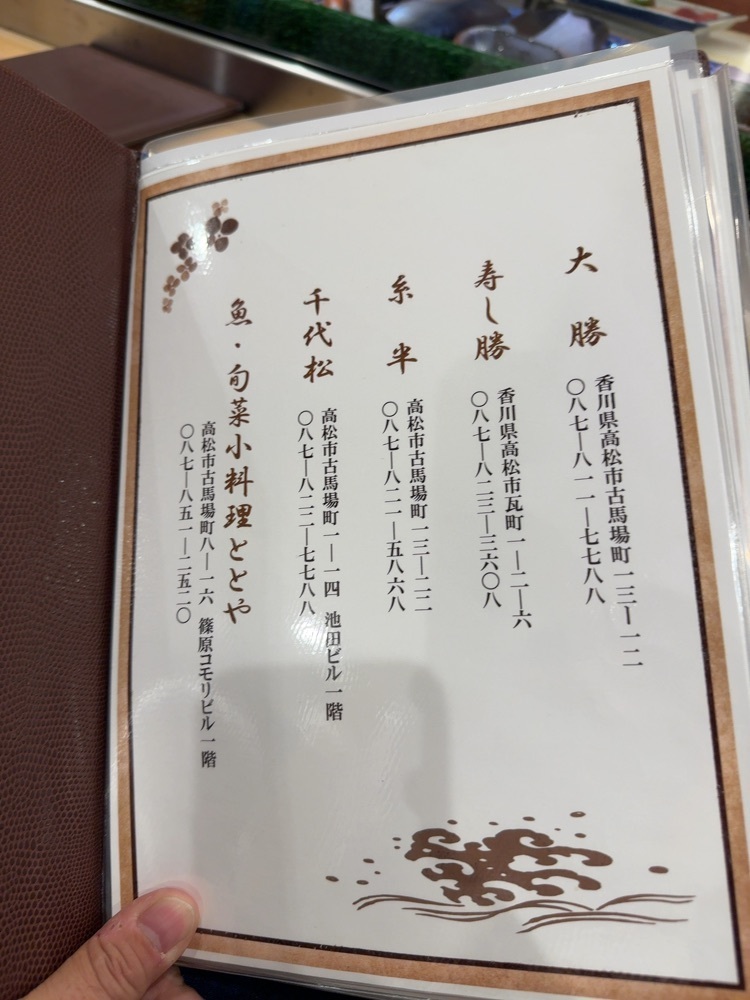 大勝
香川県高松市古馬場町一三―一二
〇八七―八一一―七七八八
寿し勝
香川県高松市瓦町一―二―六
〇八七―八二三―三六〇八
糸半
高松市古馬場町一三―二二
〇八七―八二一―五八六八
千代松
高松市古馬場町一―一四 池田ビル一階
〇八七―八二二―七七八八
魚・旬菜小料理ととや
高松市古馬場町八―一六 篠原コモリビル一階
〇八七―八五一―二五二〇